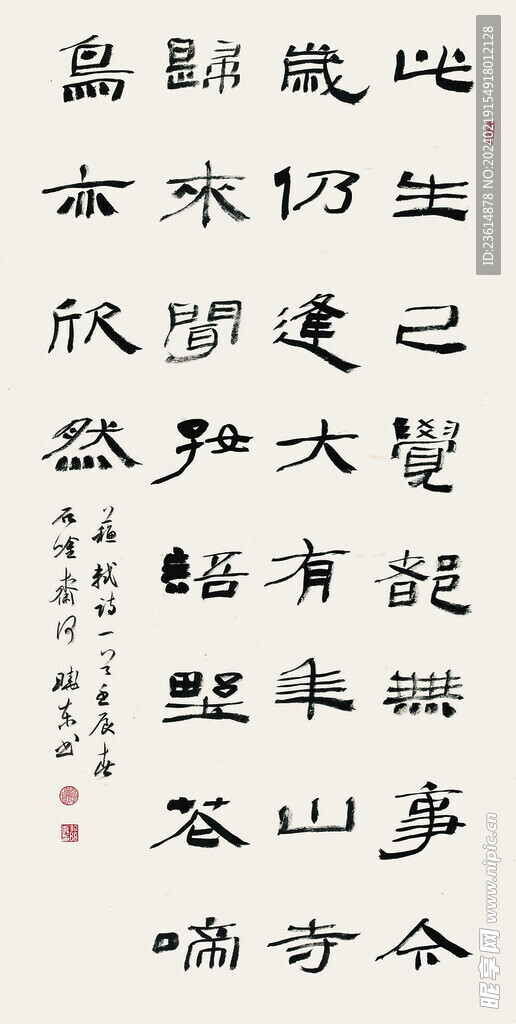 此生已覺都無事今
歲仍逢大有年山寺
歸來聞好語野花啼
鳥亦欣然
蘇軾詩一首壬辰春
石齋何曉東書
ID:23614878 NO:20240219154918012128
昵享网 www.nipic.cn